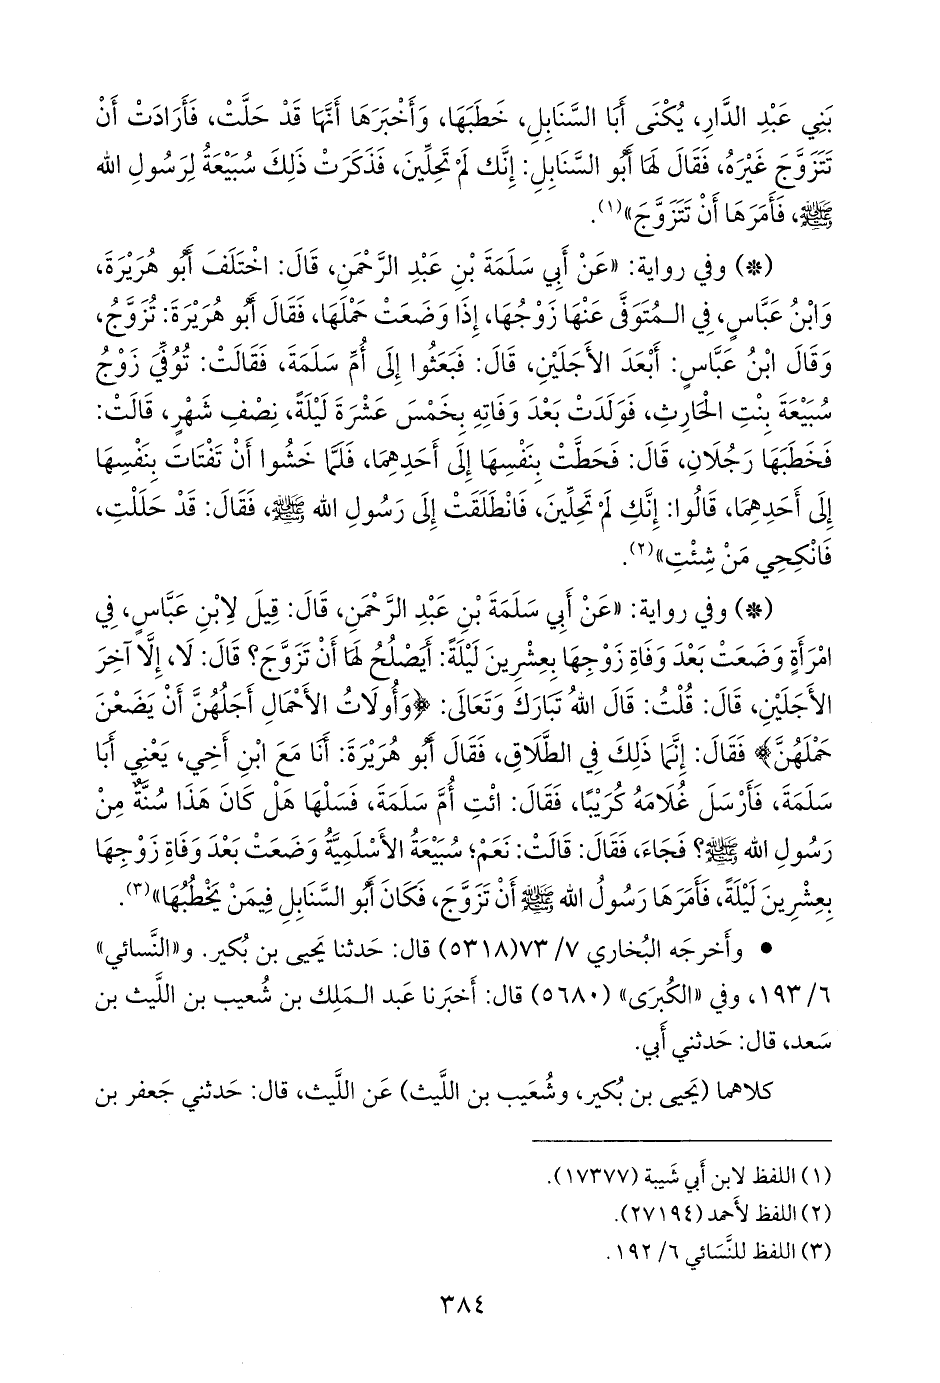 بَنِي عَبْدِ الدَّارِ، يُكْنَى أَبَا السَّنَابِلِ، خَطَبَهَا، وَأَخْبَرَهَا أَنَّهَا قَدْ حَلَّتْ، فَأَرَادَتْ أَنْ
تَتَزَوَّجَ غَيْرَهُ، فَقَالَ لَهَا أَبُو السَّنَابِلِ: إِنَّك لَمْ تَحِلِّينَ، فَذَكَرَتْ ذَلِكَ سُبَيْعَةُ لِرَسُولِ الله
ﷺ، فَأَمَرَهَا أَنْ تَتَزَوَّجَ»(١).
(*) وفي رواية: «عَنْ أَبِي سَلَمَةَ بْنِ عَبْدِ الرَّحْمَنِ، قَالَ: اخْتَلَفَ أَبُو هُرَيْرَةَ،
وَابْنُ عَبَّاسٍ، فِي الـمُتَوَفَّى عَنْهَا زَوْجُهَا، إِذَا وَضَعَتْ حَمْلَهَا، فَقَالَ أَبُو هُرَيْرَةَ: تُزَوَّجُ،
وَقَالَ ابْنُ عَبَّاسٍ: أَبْعَدَ الأَجَلَيْنِ، قَالَ: فَبَعَثُوا إِلَى أُمِّ سَلَمَةَ، فَقَالَتْ: تُوُفِّيَ زَوْجُ
سُبَيْعَةَ بِنْتِ الْحَارِثِ، فَوَلَدَتْ بَعْدَ وَفَاتِهِ بِخَمْسَ عَشْرَةَ لَيْلَةً، نِصْفِ شَهْرٍ، قَالَتْ:
فَخَطَبَهَا رَجُلَانِ، قَالَ: فَحَطَّتْ بِنَفْسِهَا إِلَى أَحَدِهِمَا، فَلَمَّا خَشُوا أَنْ تَفْتَاتَ بِنَفْسِهَا
إِلَى أَحَدِهِمَا، قَالُوا: إِنَّكِ لَمْ تَحِلِّينَ، فَانْطَلَقَتْ إِلَى رَسُولِ الله ﷺ، فَقَالَ: قَدْ حَلَلْتِ،
فَانْكِحِي مَنْ شِئْتِ»(٢).
(*) وفي رواية: «عَنْ أَبِي سَلَمَةَ بْنِ عَبْدِ الرَّحْمَنِ، قَالَ: قِيلَ لِابْنِ عَبَّاسٍ، فِي
امْرَأَةٍ وَضَعَتْ بَعْدَ وَفَاةِ زَوْجِهَا بِعِشْرِينَ لَيْلَةً: أَيَصْلُحُ لَهَا أَنْ تَزَوَّجَ؟ قَالَ: لَا، إِلَّا آخِرَ
الأَجَلَيْنِ، قَالَ: قُلْتُ: قَالَ اللهُ تَبَارَكَ وَتَعَالَى: ﴿وَأُولَاتُ الأَحْمَالِ أَجَلُهُنَّ أَنْ يَضَعْنَ
حَمْلَهُنَّ﴾ فَقَالَ: إِنَّمَا ذَلِكَ فِي الطَّلَاقِ، فَقَالَ أَبُو هُرَيْرَةَ: أَنَا مَعَ ابْنِ أَخِي، يَعْنِي أَبَا
سَلَمَةَ، فَأَرْسَلَ غُلَامَهُ كُرَيْبًا، فَقَالَ: ائْتِ أُمَّ سَلَمَةَ، فَسَلْهَا هَلْ كَانَ هَذَا سُنَّةً مِنْ
رَسُولِ الله ﷺ؟ فَجَاءَ، فَقَالَ: قَالَتْ: نَعَمْ؛ سُبَيْعَةُ الأَسْلَمِيَّةُ وَضَعَتْ بَعْدَ وَفَاةِ زَوْجِهَا
بِعِشْرِينَ لَيْلَةً، فَأَمَرَهَا رَسُولُ الله ﷺ أَنْ تَزَوَّجَ، فَكَانَ أَبُو السَّنَابِلِ فِيمَنْ يَخْطُبُهَا»(٣).
• وأَخرجَه البُخاري ٧/ ٧٣(٥٣١٨) قال: حَدثنا يَحيى بن بُكير. و«النَّسائي»
٦/ ١٩٣، وفي «الكُبرَى» (٥٦٨٠) قال: أَخبَرنا عَبد الـمَلِك بن شُعيب بن اللَّيث بن
سَعد، قال: حَدثني أَبي.
كلاهما (يَحيى بن بُكير، وشُعَيب بن اللَّيث) عَن اللَّيث، قال: حَدثني جَعفر بن
(١) اللفظ لابن أَبي شَيبة (١٧٣٧٧).
(٢) اللفظ لأَحمد (٢٧١٩٤).
(٣) اللفظ للنَّسَائي ٦/ ١٩٢.
٣٨٤